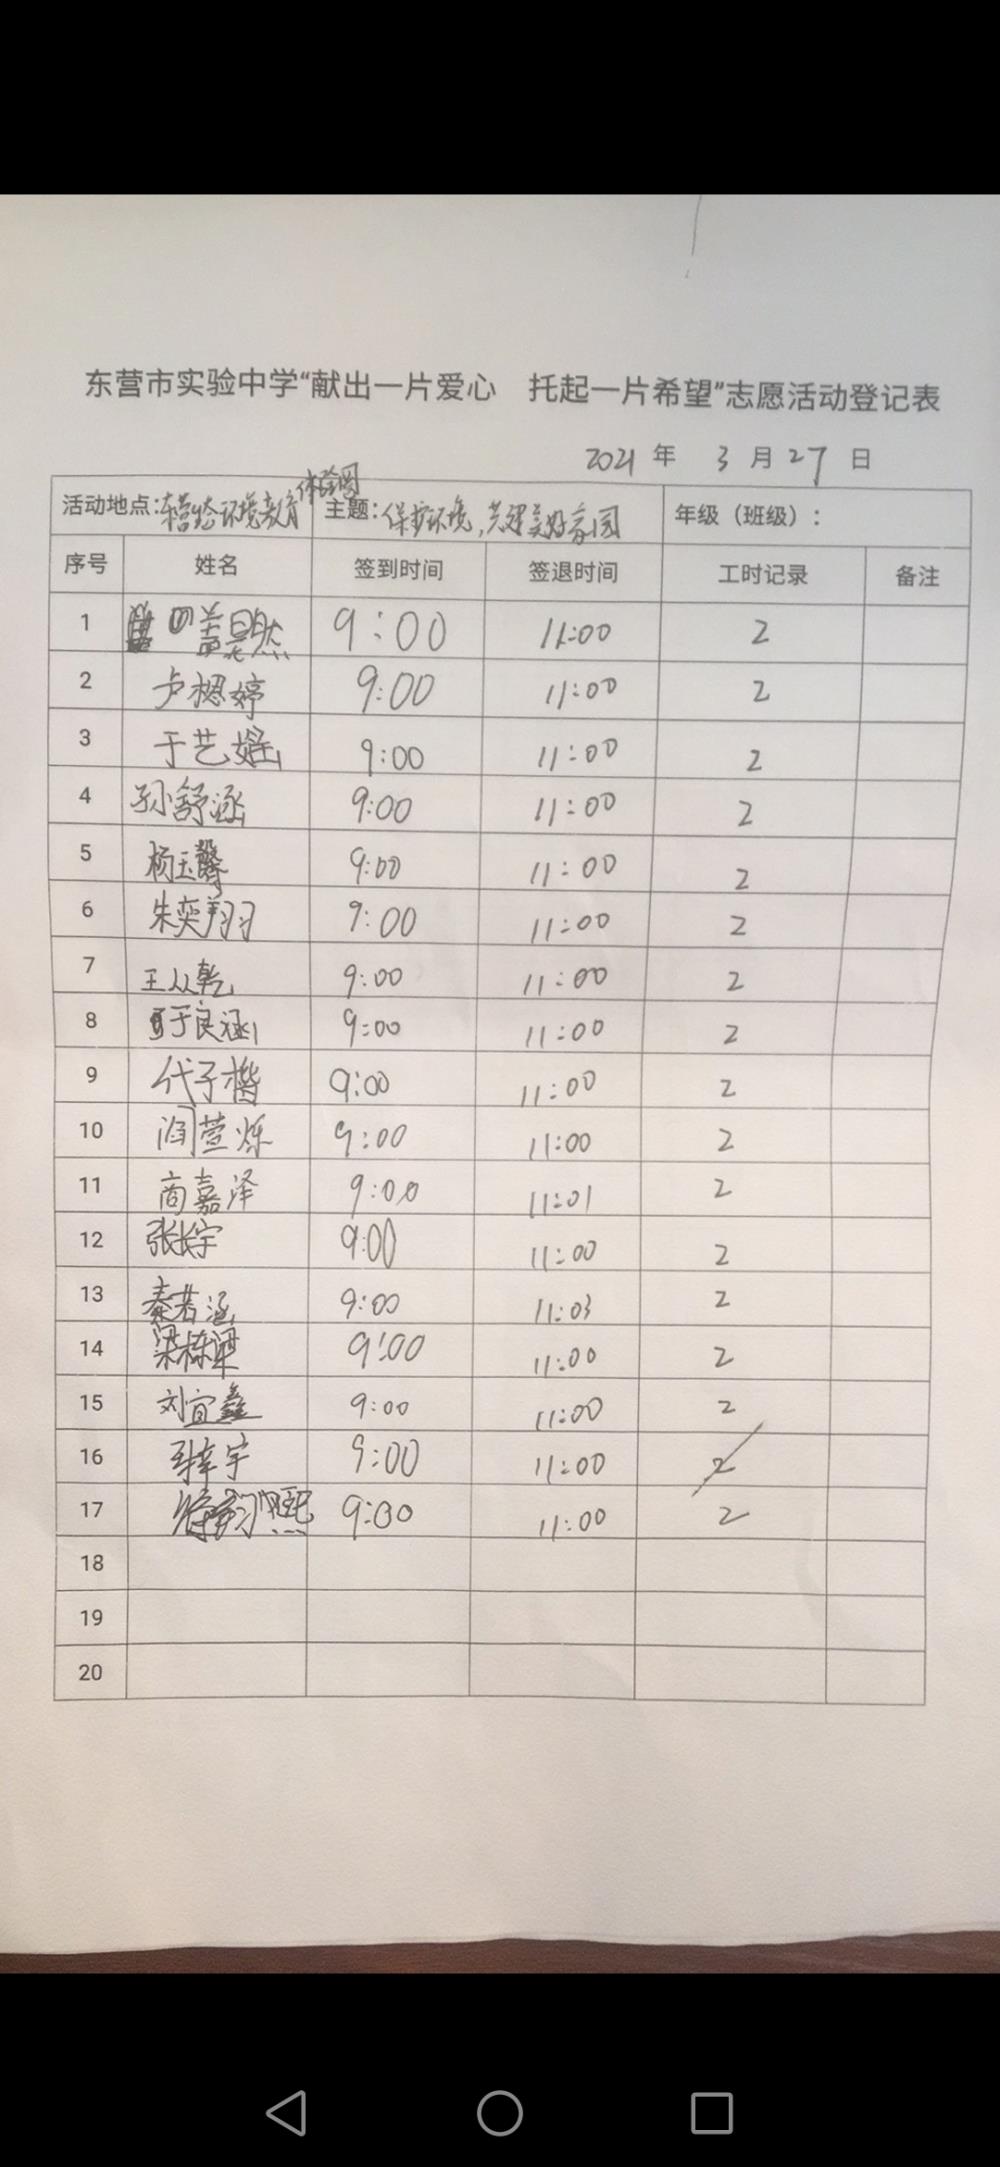 东营市实验中学“献出一片爱心 托起一片希望”志愿活动登记表
2021 年 3 月 27 日
活动地点:东营生态环境教育体验园 主题:保护环境,共建美好家园 年级（班级）:
序号 姓名 签到时间 签退时间 工时记录 备注
1 9:00 11:00 2
2 卢想婷 9:00 11:00 2
3 于艺媱 9:00 11:00 2
4 孙舒涵 9:00 11:00 2
5 杨玉馨 9:00 11:00 2
6 朱奕翔 9:00 11:00 2
7 王从乾 9:00 11:00 2
8 于良涵 9:00 11:00 2
9 代子楷 9:00 11:00 2
10 阎萱烁 9:00 11:00 2
11 商嘉泽 9:00 11:01 2
12 张长宇 9:00 11:00 2
13 秦若涵 9:00 11:03 2
14 梁栋梁 9:00 11:00 2
15 刘宜鑫 9:00 11:00 2
16 宇 9:00 11:00 2
17 熙 9:00 11:00 2
18
19
20